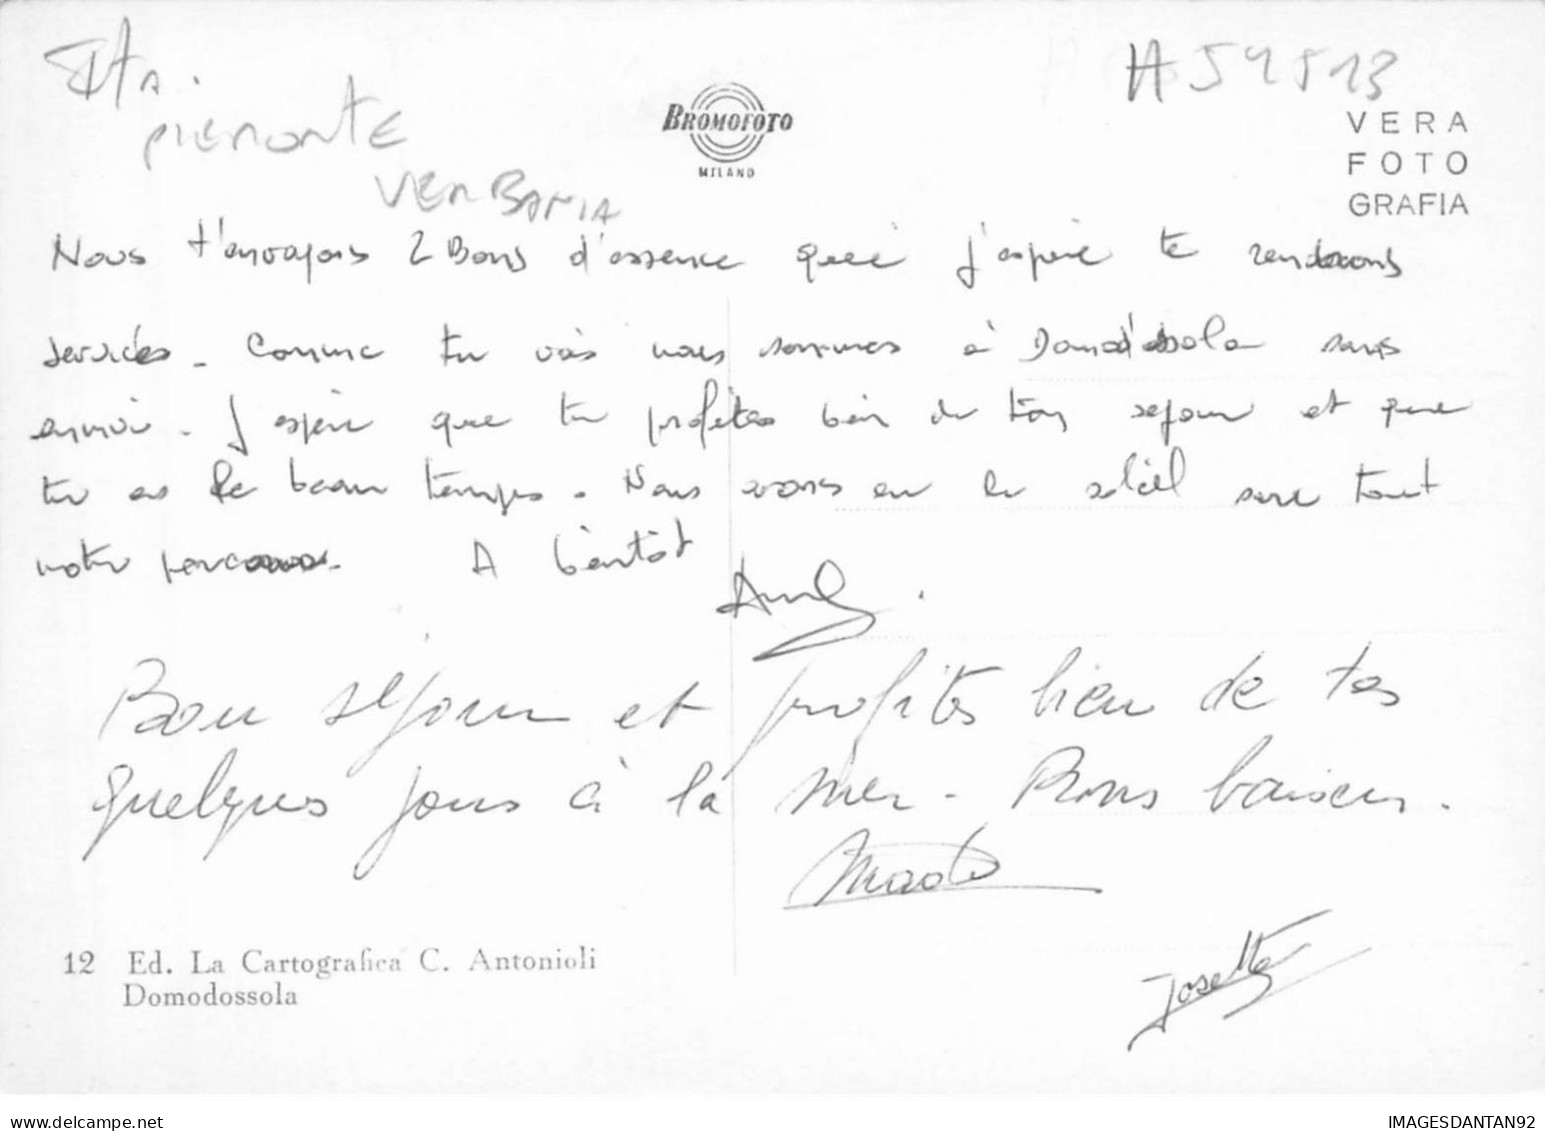 Ita.
PIEMONTE
VERBANIA
H 54513
BROMOFOTO
MILANO
VERA
FOTO
GRAFIA
Nous t'envoyons 2 Bons d'essence que j'espère te rendrons
services. Comme tu vois nous sommes à Domodossola sans
ennui. J'espère que tu profites bien de ton séjour et que
tu as le beau temps. Nous avons eu le soleil sur tout
notre parcours. A bientôt
Bon séjour et profites bien de tes
quelques jours à la mer. Bons baisers.
Josette
12 Ed. La Cartografica C. Antonioli
Domodossola
delcampe.net
IMAGESDANTAN92